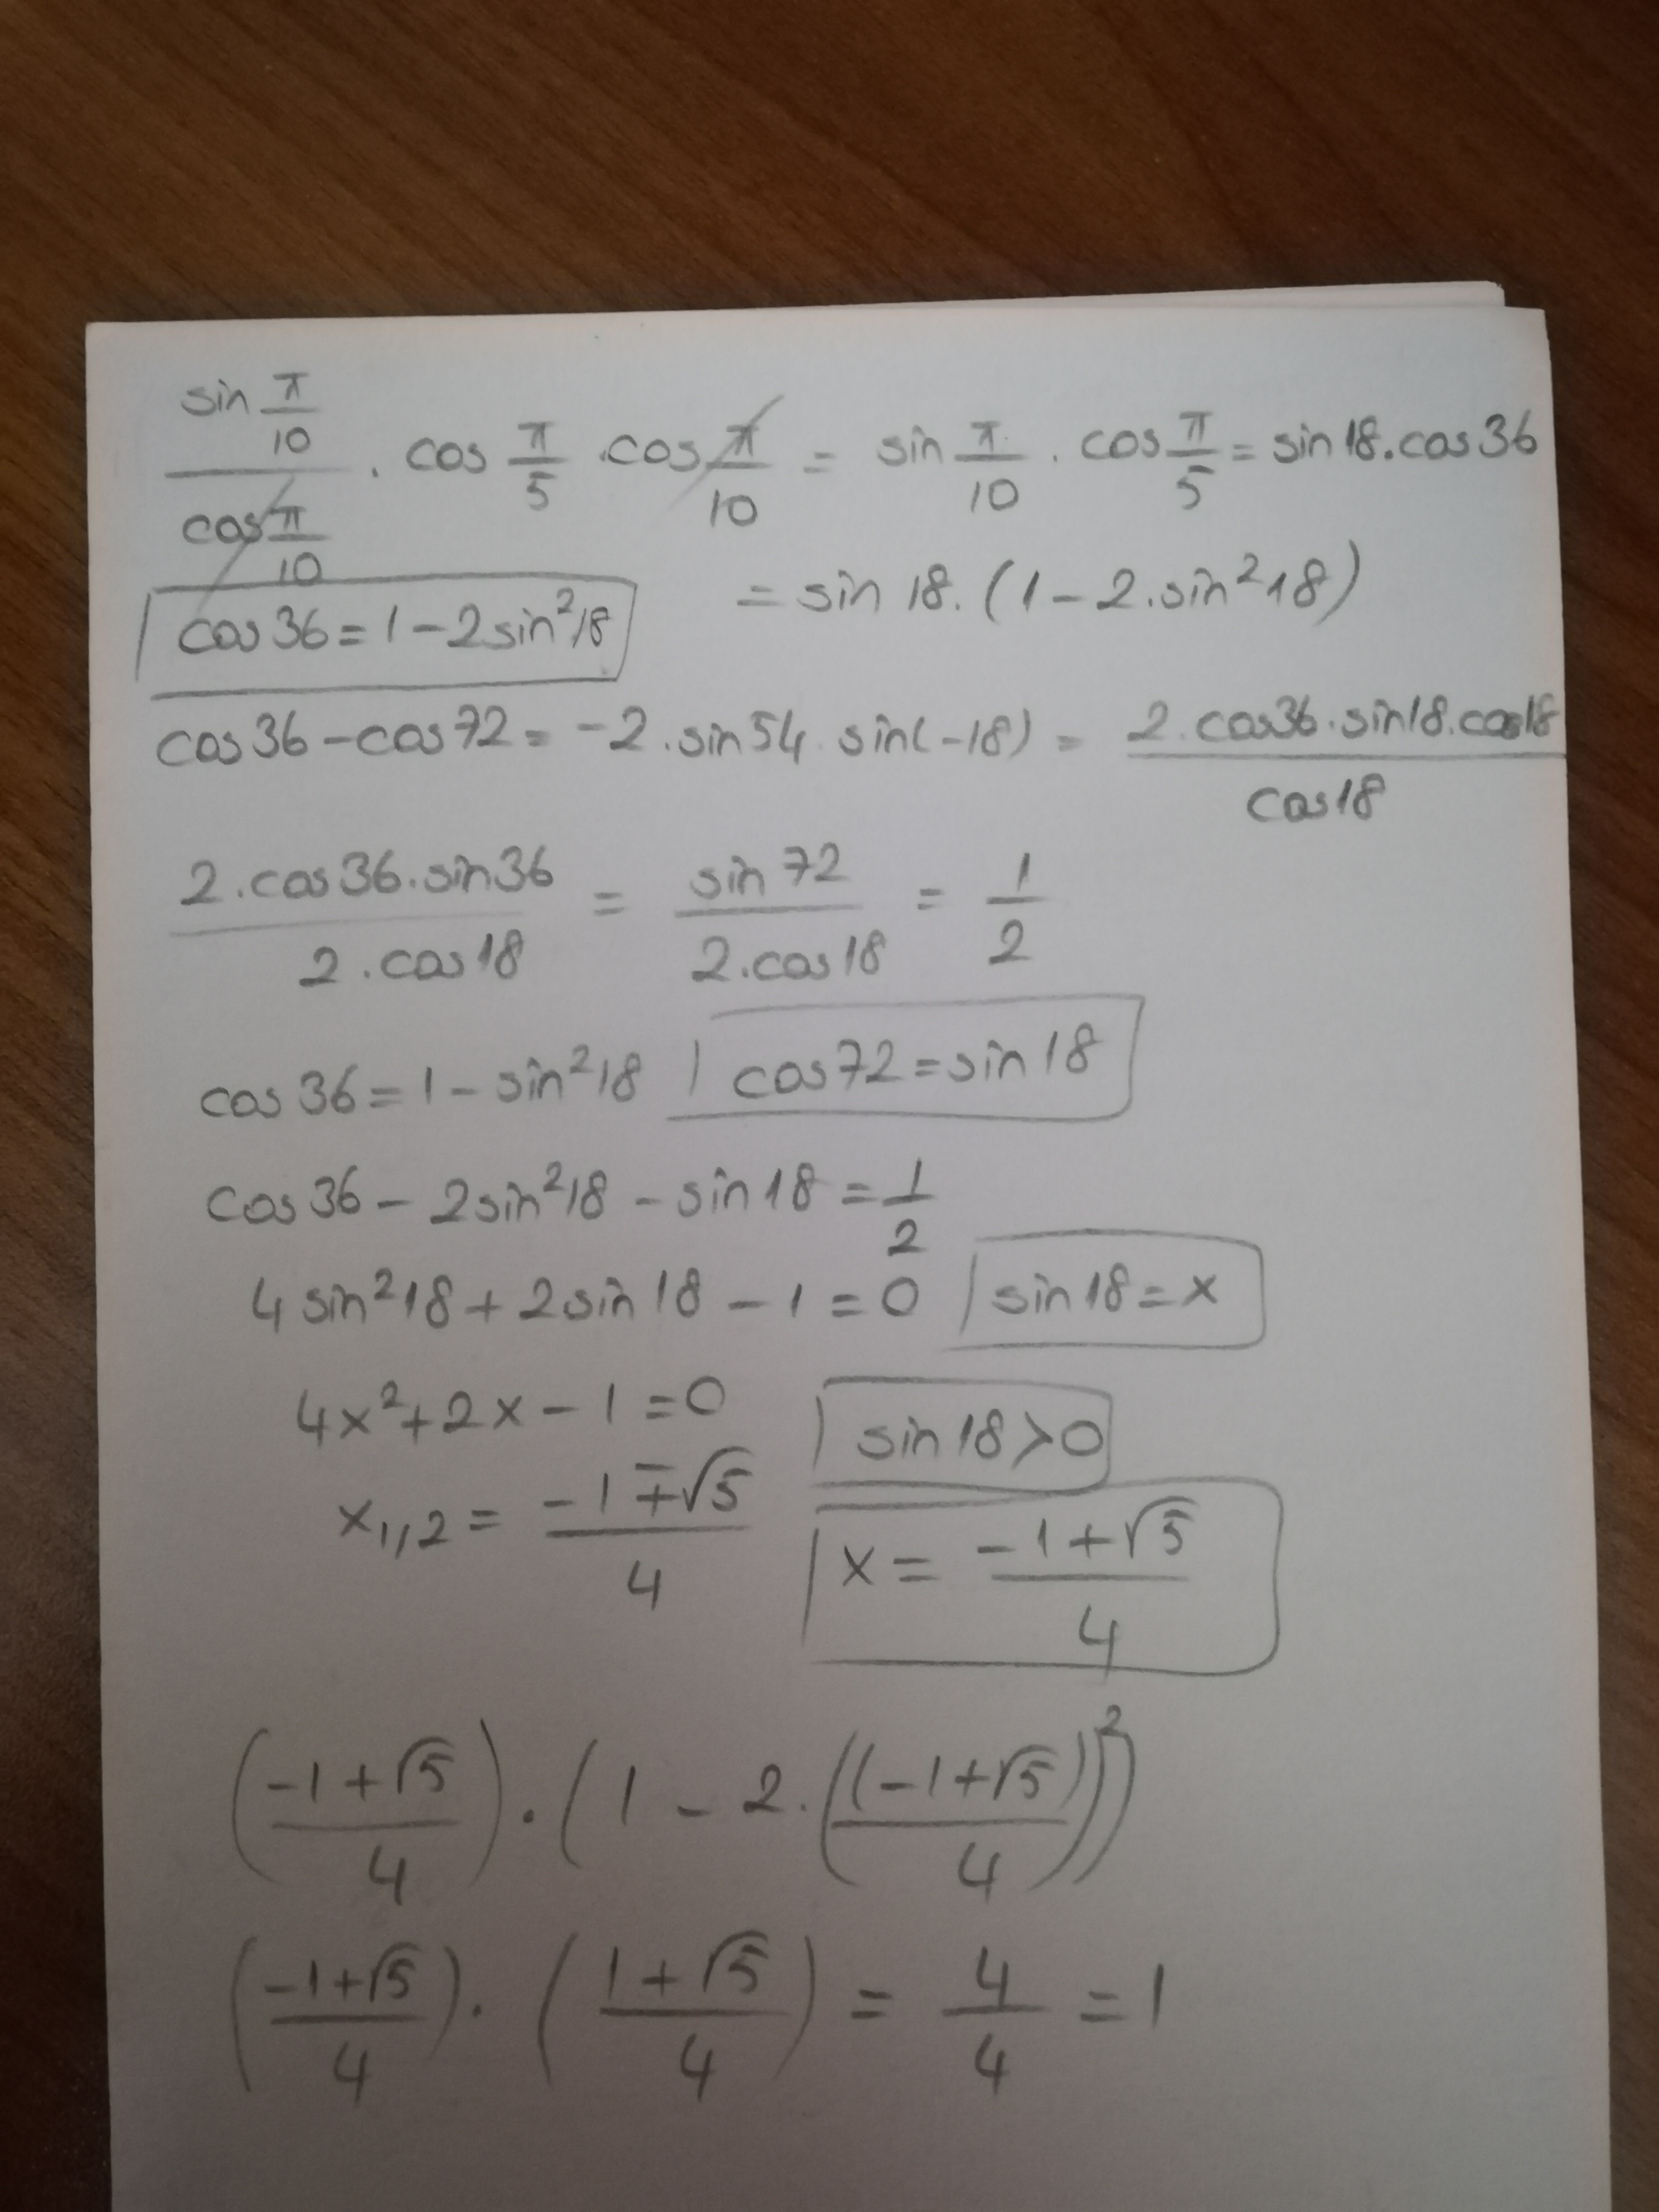 sin π/10 / cos π/10 . cos π/5 . cos π/10 = sin π/10 . cos π/5 = sin18.cos36
cos36=1-2sin²18
= sin 18.(1-2.sin²18)
cos36-cos72=-2.sin54.sin(-18) = 2.cos36.sin18.cos18 / cos18
2.cos36.sin36 / 2.cos18 = sin72 / 2.cos18 = 1/2
cos36=1-sin²18 | cos72=sin18
cos36-2sin²18-sin18=1/2
4sin²18+2sin18-1=0 | sin18=x
4x²+2x-1=0 | sin18>0
x₁,₂ = -1∓√5 / 4 | x = -1+√5 / 4
(-1+√5 / 4).(1-2.((-1+√5) / 4)²)
(-1+√5 / 4).(1+√5 / 4) = 4/4 = 1